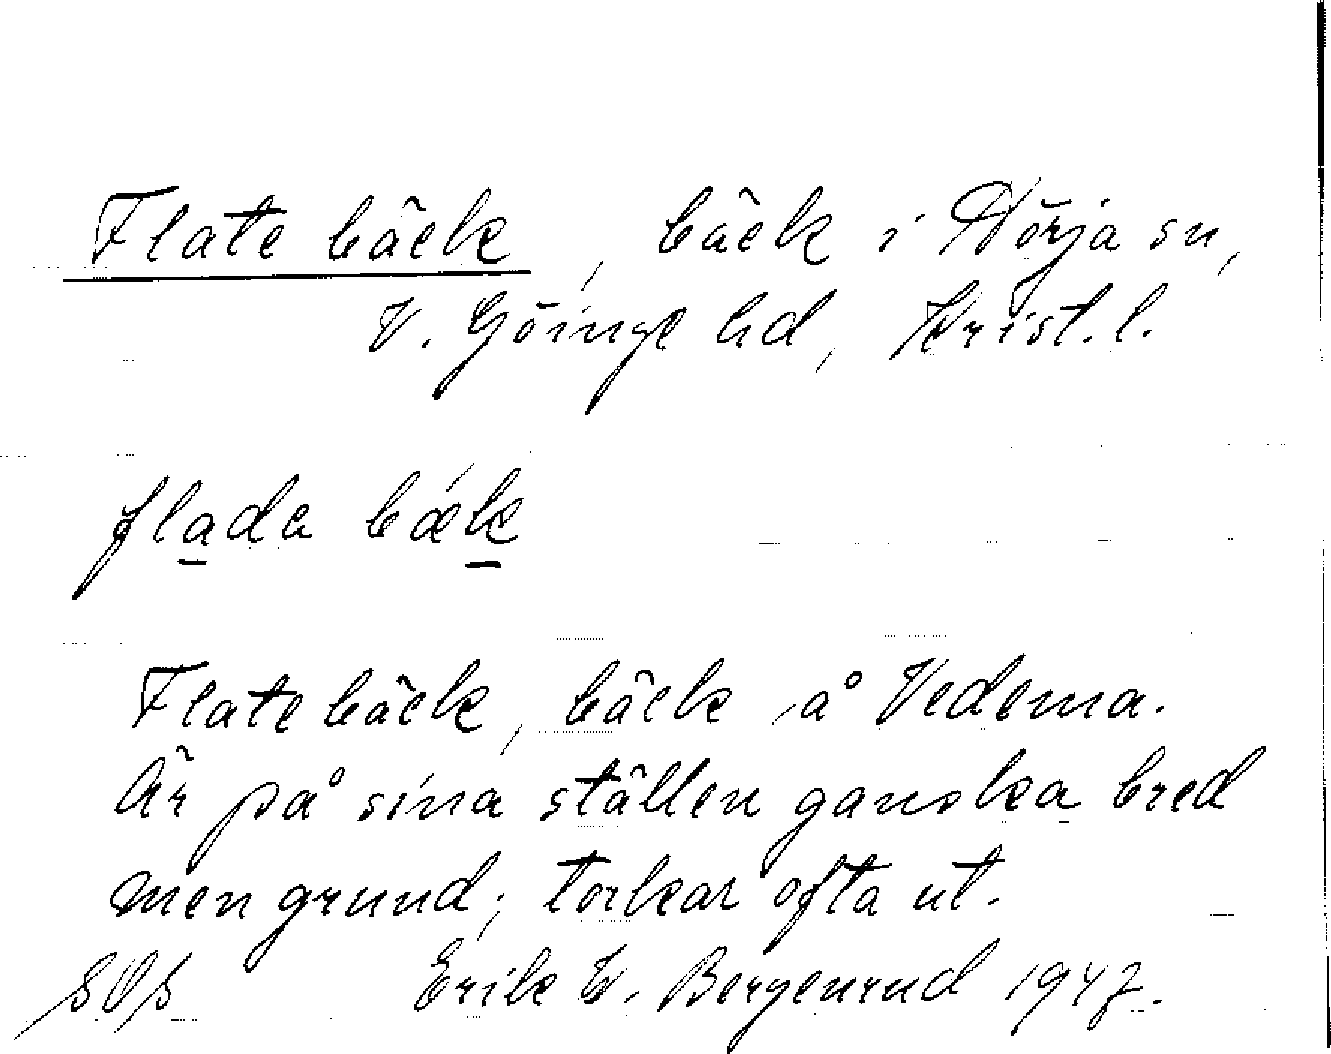 Flate bäck, bäck i Nörja sn,
V. Göinge hd, Krist. l.
flada bæk
Flate bäck, bäck å Vedema.
Är på sina ställen ganska bred
men grund; torkar ofta ut.
Erik E. Bergenrud 1947.